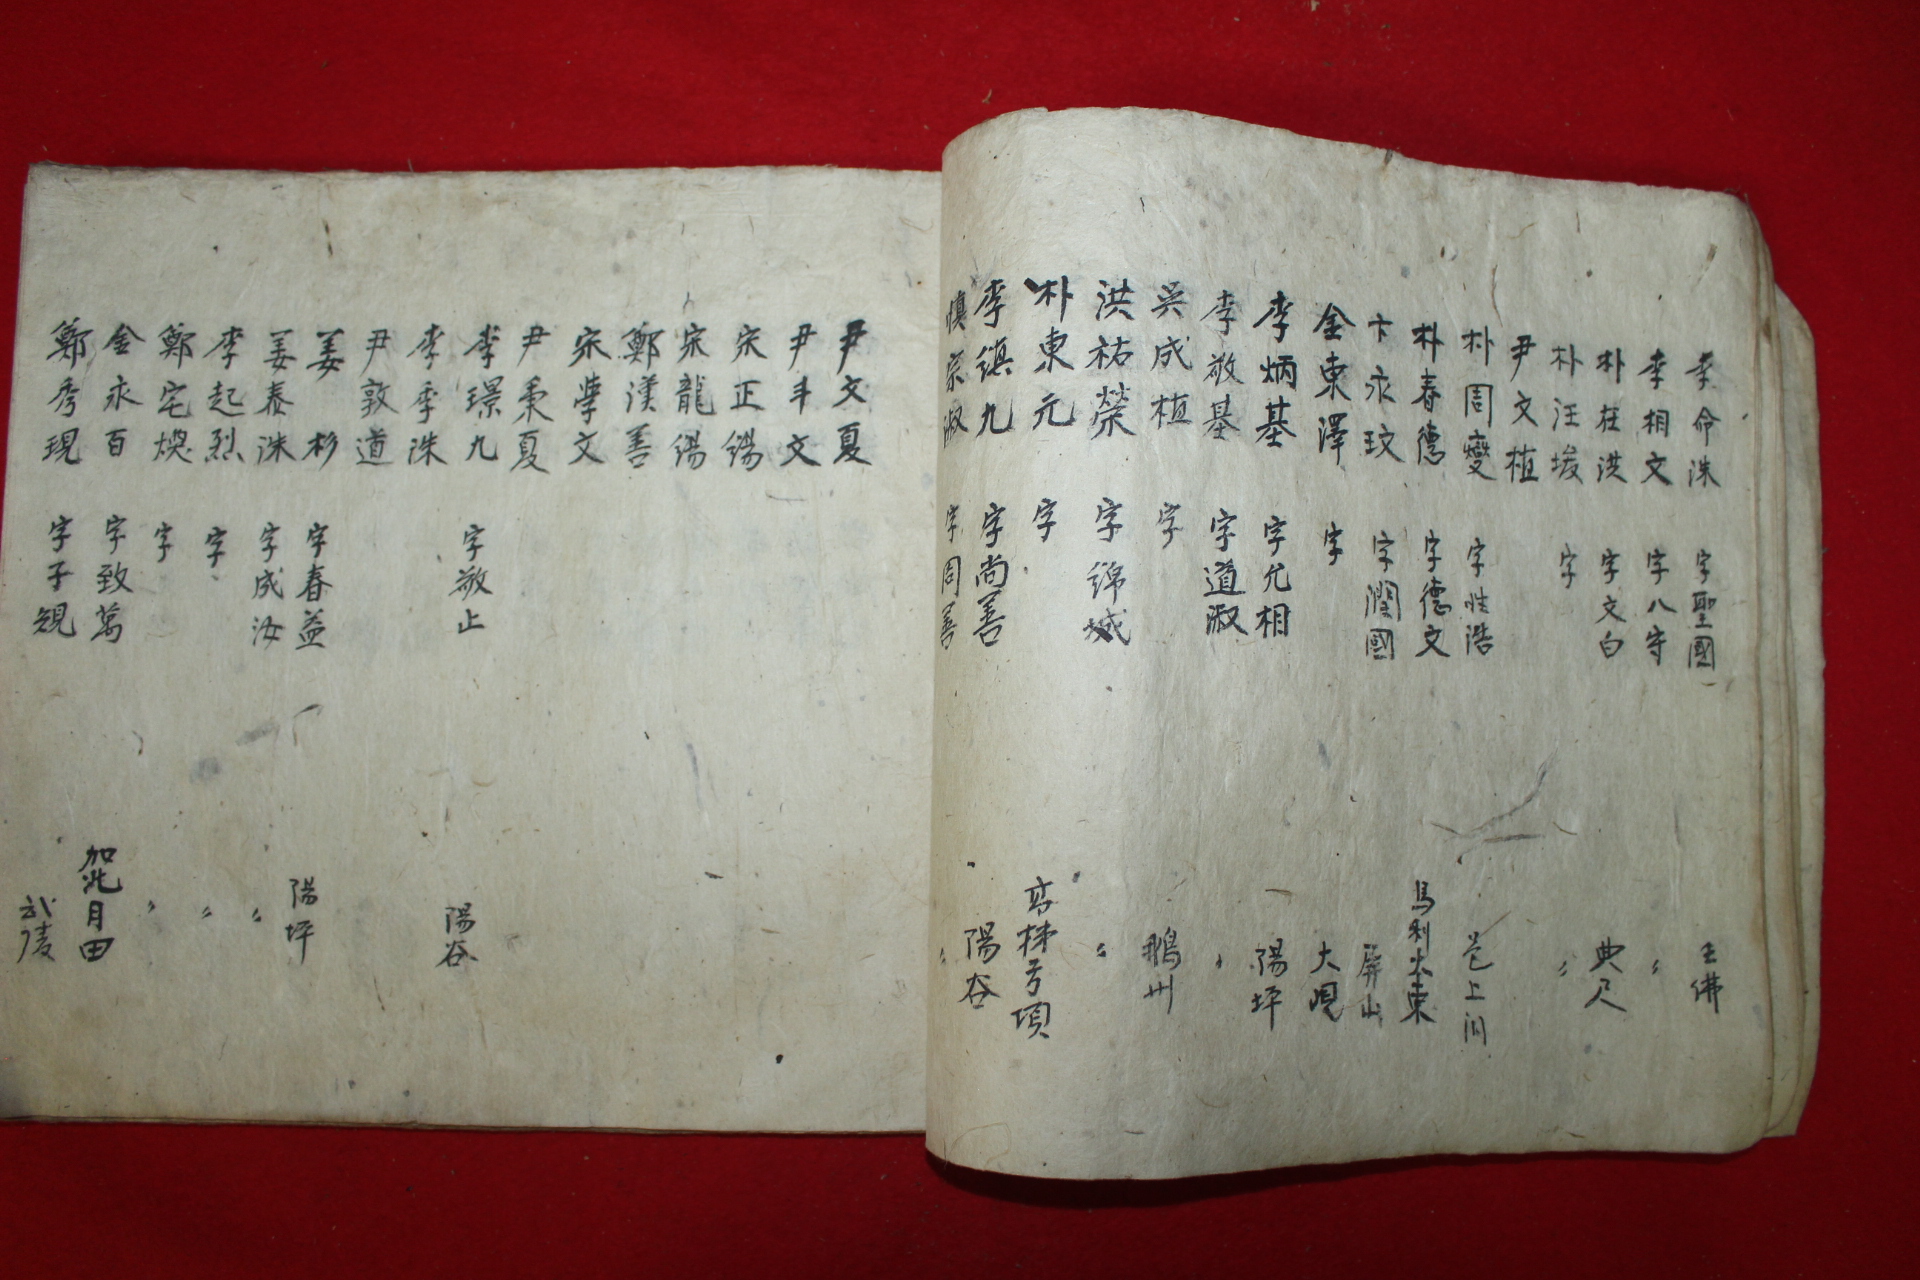 李命洙 字聖國 王佛
李相文 字八守 〃
朴在洪 字文白 典尺
朴汪埈 字 〃
尹文植
朴周燮 字性浩 上澗
朴春德 字德文 馬利火東
卞永玟 字潤國 屏山
金東澤 字 大峴
李炳基 字允相 陽坪
李敬基 字道淑 〃
吳成植 字 鵝州
洪祐榮 字錦城 〃
朴東元 字 高梯弓項
李縝九 字尚善 陽谷
愼宗淑 字周善 〃
尹文夏
尹丰文
宋正錫
宋龍錫
鄭漢善
宋學文
尹秉夏
李璟九 字敬止 陽谷
李季洙
尹敦道
姜杉 字春益 陽坪
姜泰洙 字成汝 〃
李起烈 字 〃
鄭宅煥 字 〃
金永百 字致萬 加兆月田
鄭秀現 字子規 武陵